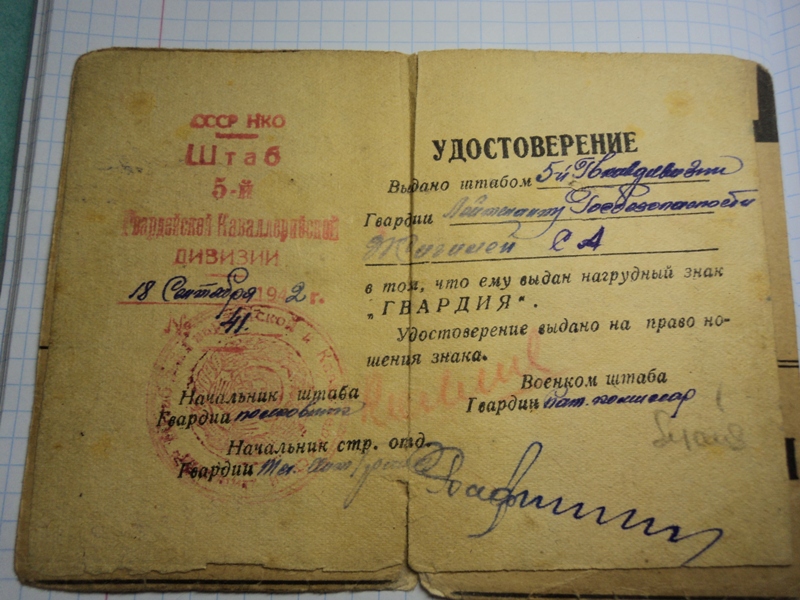 СССР НКО
Штаб
5-й
Гвардейской Каваллерийской
ДИВИЗИИ
18 Сентября 1942 г.
№ 41.
Начальник штаба
Гвардии полковник
Начальник стр. отд.
Гвардии
УДОСТОВЕРЕНИЕ
Выдано штабом 5й Гв кавдивизии
Гвардии Лейтенанту Госбезопасности
С А
в том, что ему выдан нагрудный знак
„ГВАРДИЯ“.
Удостоверение выдано на право но-
шения знака.
Военком штаба
Гвардии бат. комиссар